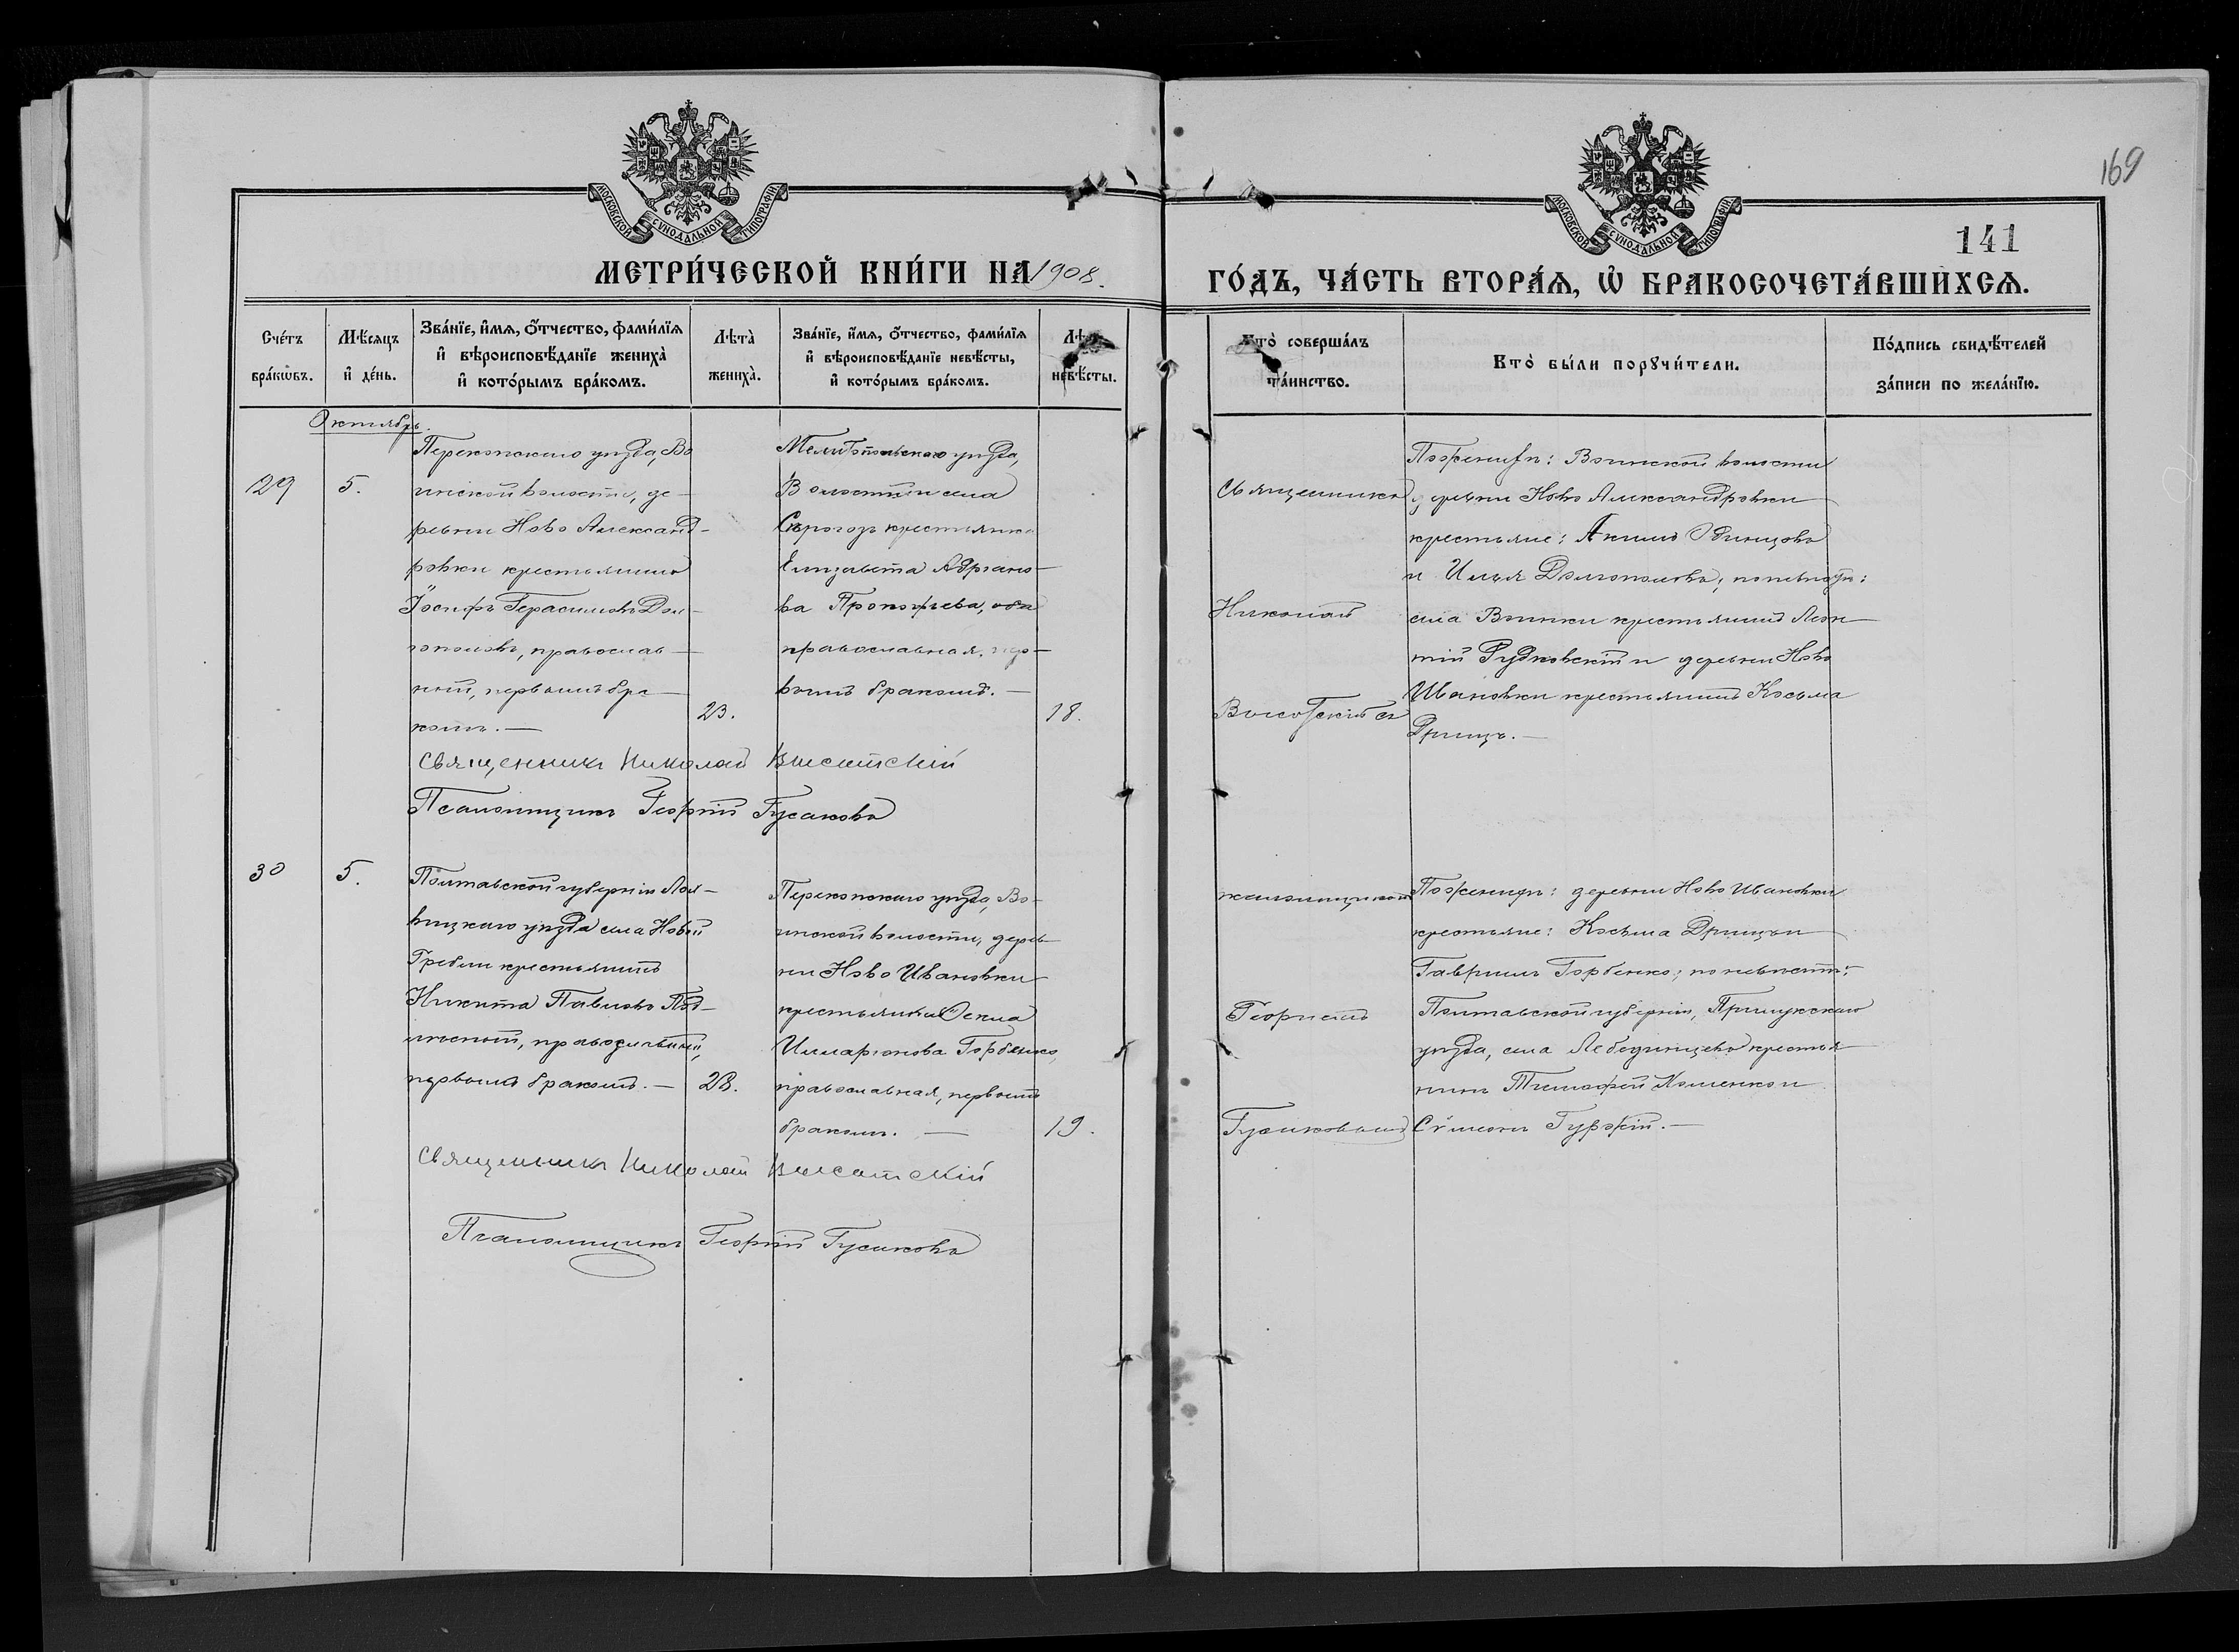 169
141
МОСКОВСКОЙ СѴНОДАЛЬНОЙ ТИПОГРАФІИ
МОСКОВСКОЙ СѴНОДАЛЬНОЙ ТИПОГРАФІИ
МЕТРИ́ЧЕСКОЙ КНИ́ГИ НА 1908.
ГО́ДЪ, ЧА́СТЬ ВТОРА́Ѧ, Ѡ БРАКОСОЧЕТА́ВШИХСѦ.
Сче́тъ
бра́кѡвъ.
Мѣ́сяцъ
и҆ де́нь.
Зва́нїе, и҆́мѧ, ѻ҆́тчество, фами́лїѧ
и҆ вѣроисповѣ́данїе жениха̀
и҆ кото́рымъ бра́комъ.
Лѣта̀
жениха̀.
Зва́нїе, и҆́мѧ, ѻ҆́тчество, фами́лїѧ
и҆ вѣроисповѣ́данїе невѣ́сты,
и҆ кото́рымъ бра́комъ.
невѣ́сты.
Кто̀ соверша́лъ
та́инство.
Кто̀ бы́ли порꙋчи́тели.
По́дпись свидѣ́телей
за́писи по жела́нїю.
Октябрь.
29
5.
Перекопскаго уѣзда, Во
инской волости, де-
ревни Ново Александ-
ровки крестьянинъ
Іосифъ Герасимовъ Дол-
гополовъ, православ-
ный, первымъ бра-
комъ.—
23.
Мелитопольскаго уѣзда,
Волости и села
Сѣрогозъ крестьянка
Елизавета Адріано-
ва Прокофьева,
православная, пер-
вымъ бракомъ.—
18.
Священникъ
Николай
Высотскій съ
По женихѣ: Воинской волости
деревни Ново Александровки
крестьяне: Акимъ Одинцовъ
и Илья Долгополовъ; по невѣстѣ:
села Воинки крестьянинъ Леон-
тій Рудковскій и деревни Ново
Ивановки крестьянинъ Косьма
Дрищъ.—
Священникъ Николай Высотскій
Псаломщикъ Георгій Гусаковъ
30
5.
Полтавской губерніи Лох-
вицкаго уѣзда села Новой
Гребли крестьянинъ
Никита Павловъ Под-
лѣсный, православный,
первымъ бракомъ.—
23.
Перекопскаго уѣзда, Во-
инской волости, дерев-
ни Ново Ивановки
крестьянка
Илларіонова Горбенко,
православная, первымъ
бракомъ.—
19.
псаломщикомъ
Георгіемъ
Гусаковымъ
По женихѣ: деревни Ново Ивановки
крестьяне: Косьма Дрищъ и
Гавріилъ Горбенко; по невѣстѣ:
Полтавской губерніи, Прилукскаго
уѣзда, села крестья-
нинъ Тимофей и
Сѵмеонъ Гуржій.—
Священникъ Николай Высотскій
Псаломщикъ Георгій Гусаковъ